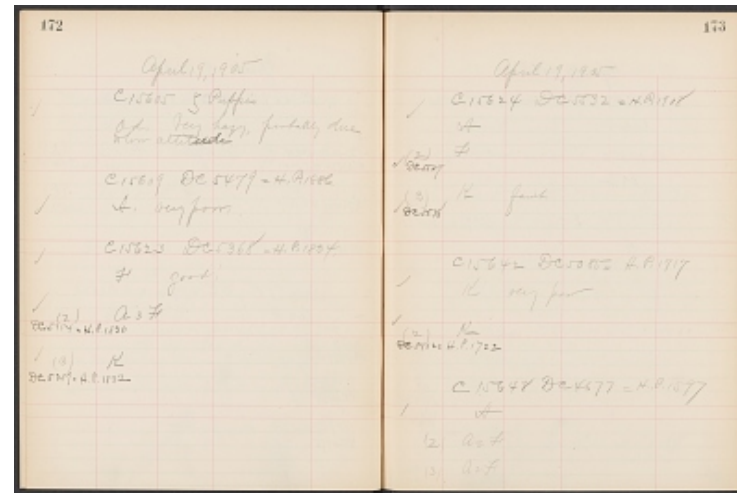 172
April 19, 1905
C15605 ζ Puppis
o.d. Very hazy, probably due
to low altitude
C15619 DC5479 = H.P.1886
A. very poor.
C15623 DC5368 = H.P.1834
F good.
(2) A3F
= H.P.1830
(3) K
= H.P.1832
173
April 19, 1905
C15624 DC5532 = H.P.1908
A
(2) F
(3) K faint
C15642 H.P.1717
K very poor
(2)
= H.P.1722
C15648 DC4677 = H.P.1597
A
(2) A2F
(3) A2F